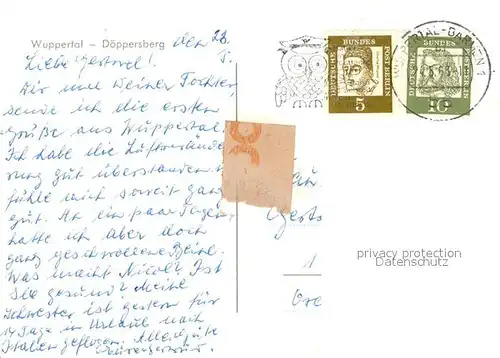 Wuppertal – Döppersberg
den 28.
Liebe
Dir und Deiner Tochter
sende ich die ersten
Grüße aus Wuppertal.
Ich habe die Luftverände
rung gut überstanden u.
fühle mich soweit ganz
gut. An ein paar Tagen
hatte ich aber doch
ganz geschwollene Beine.
Was macht Nicol? Ist
Sie gesund? Meine
Schwester ist gestern für
14 Tage in Urlaub nach
Italien geflogen. Alles Gute
DEUTSCHE BUNDES POST BERLIN
5
DEUTSCHE BUNDES POST BERLIN
10
privacy protection
Datenschutz